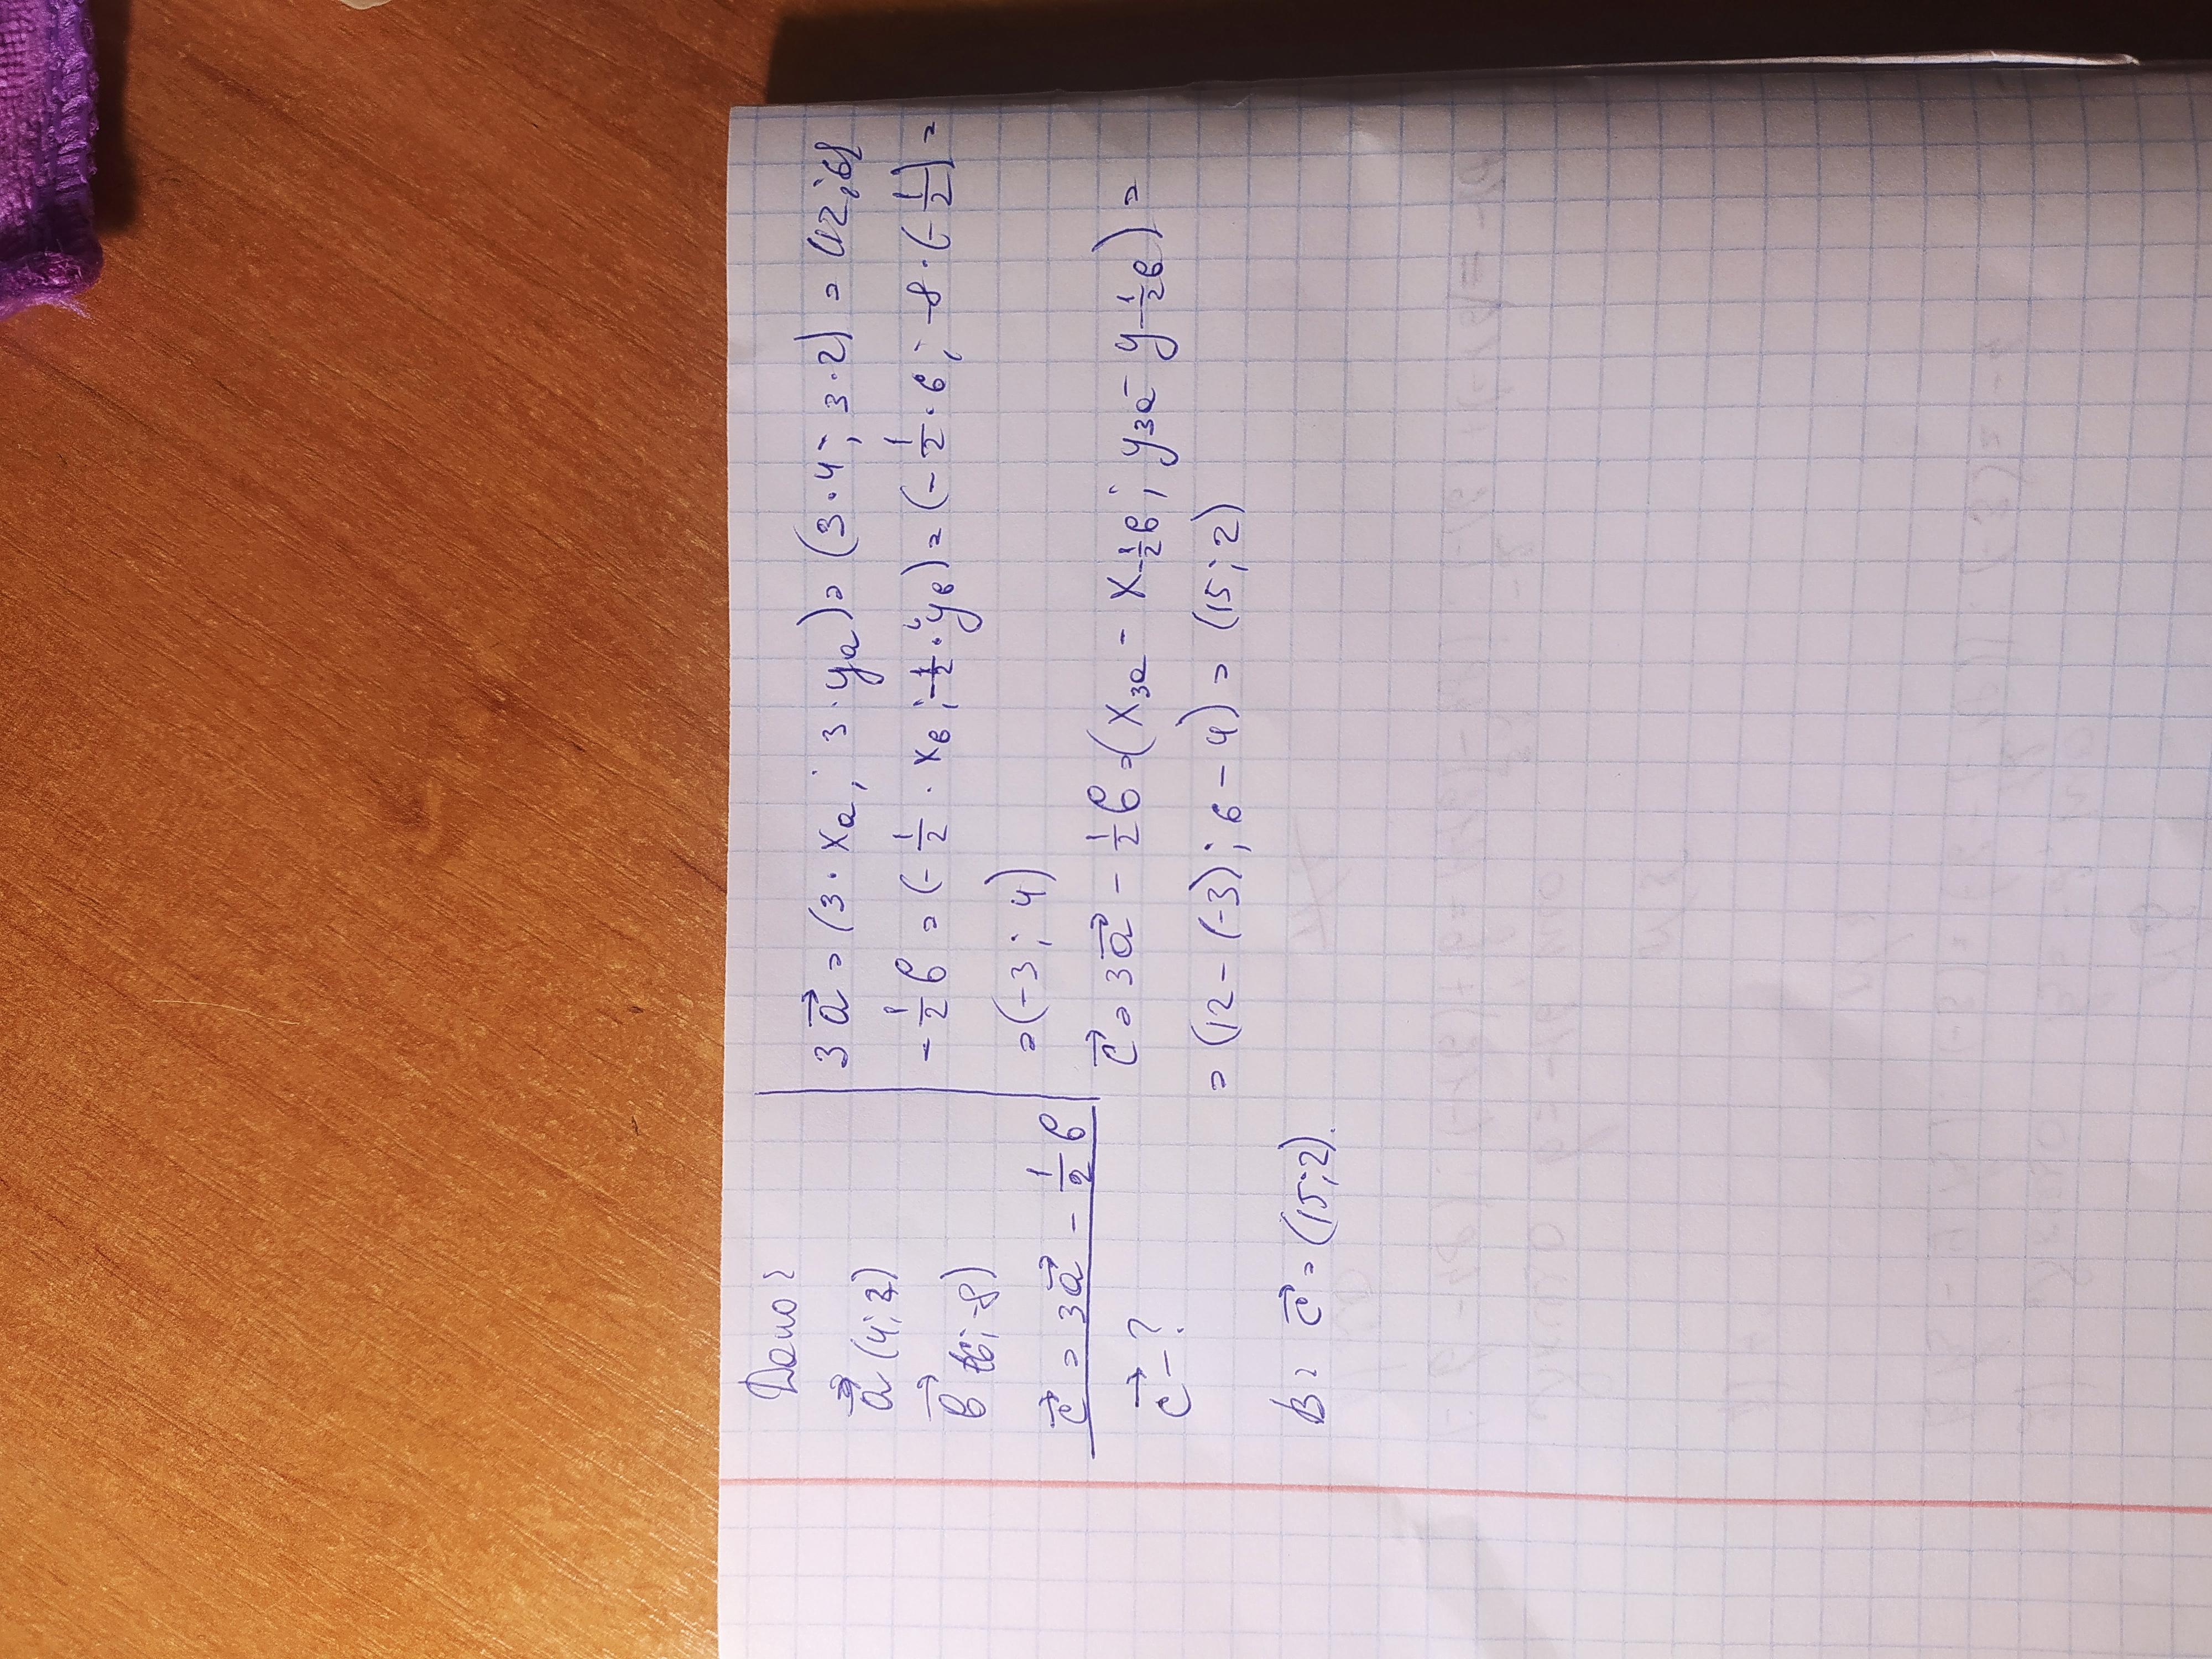 Дано:
a⃗ (4; 2)
b⃗ (6; -8)
c⃗ = 3a⃗ - 1/2 b
c⃗ - ?
3a⃗ = (3 · xa; 3 · ya) = (3 · 4; 3 · 2) = (12; 6)
-1/2 b = (-1/2 · xb; -1/2 · yb) = (-1/2 · 6; -8 · (-1/2)) =
= (-3; 4)
c⃗ = 3a⃗ - 1/2 b = (x3a - x-1/2b; y3a - y-1/2b) =
= (12 - (-3); 6 - 4) = (15; 2)
В: c⃗ = (15; 2).